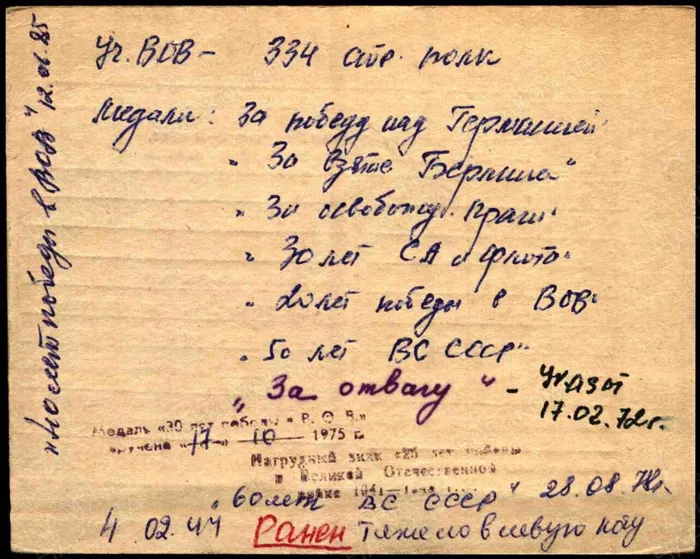 Уч. ВОВ – 334 стр. полк
Медали: За победу над Германией
" За взятие Берлина"
" За освобожд. Праги"
" 30 лет СА и Флота"
" 20 лет победы в ВОВ"
" 50 лет ВС СССР"
"За отвагу" – Указ от
17.02.72г.
Медаль «30 лет победы в В. О. В.»
вручена «17» 10 1975 г.
Нагрудный знак «25 лет победы
в Великой Отечественной
войне 1941—
"60 лет ВС СССР" 28.08.78г.
4.02.44 Ранен тяжело в левую
"40 лет победы в ВОВ" 12.04.85